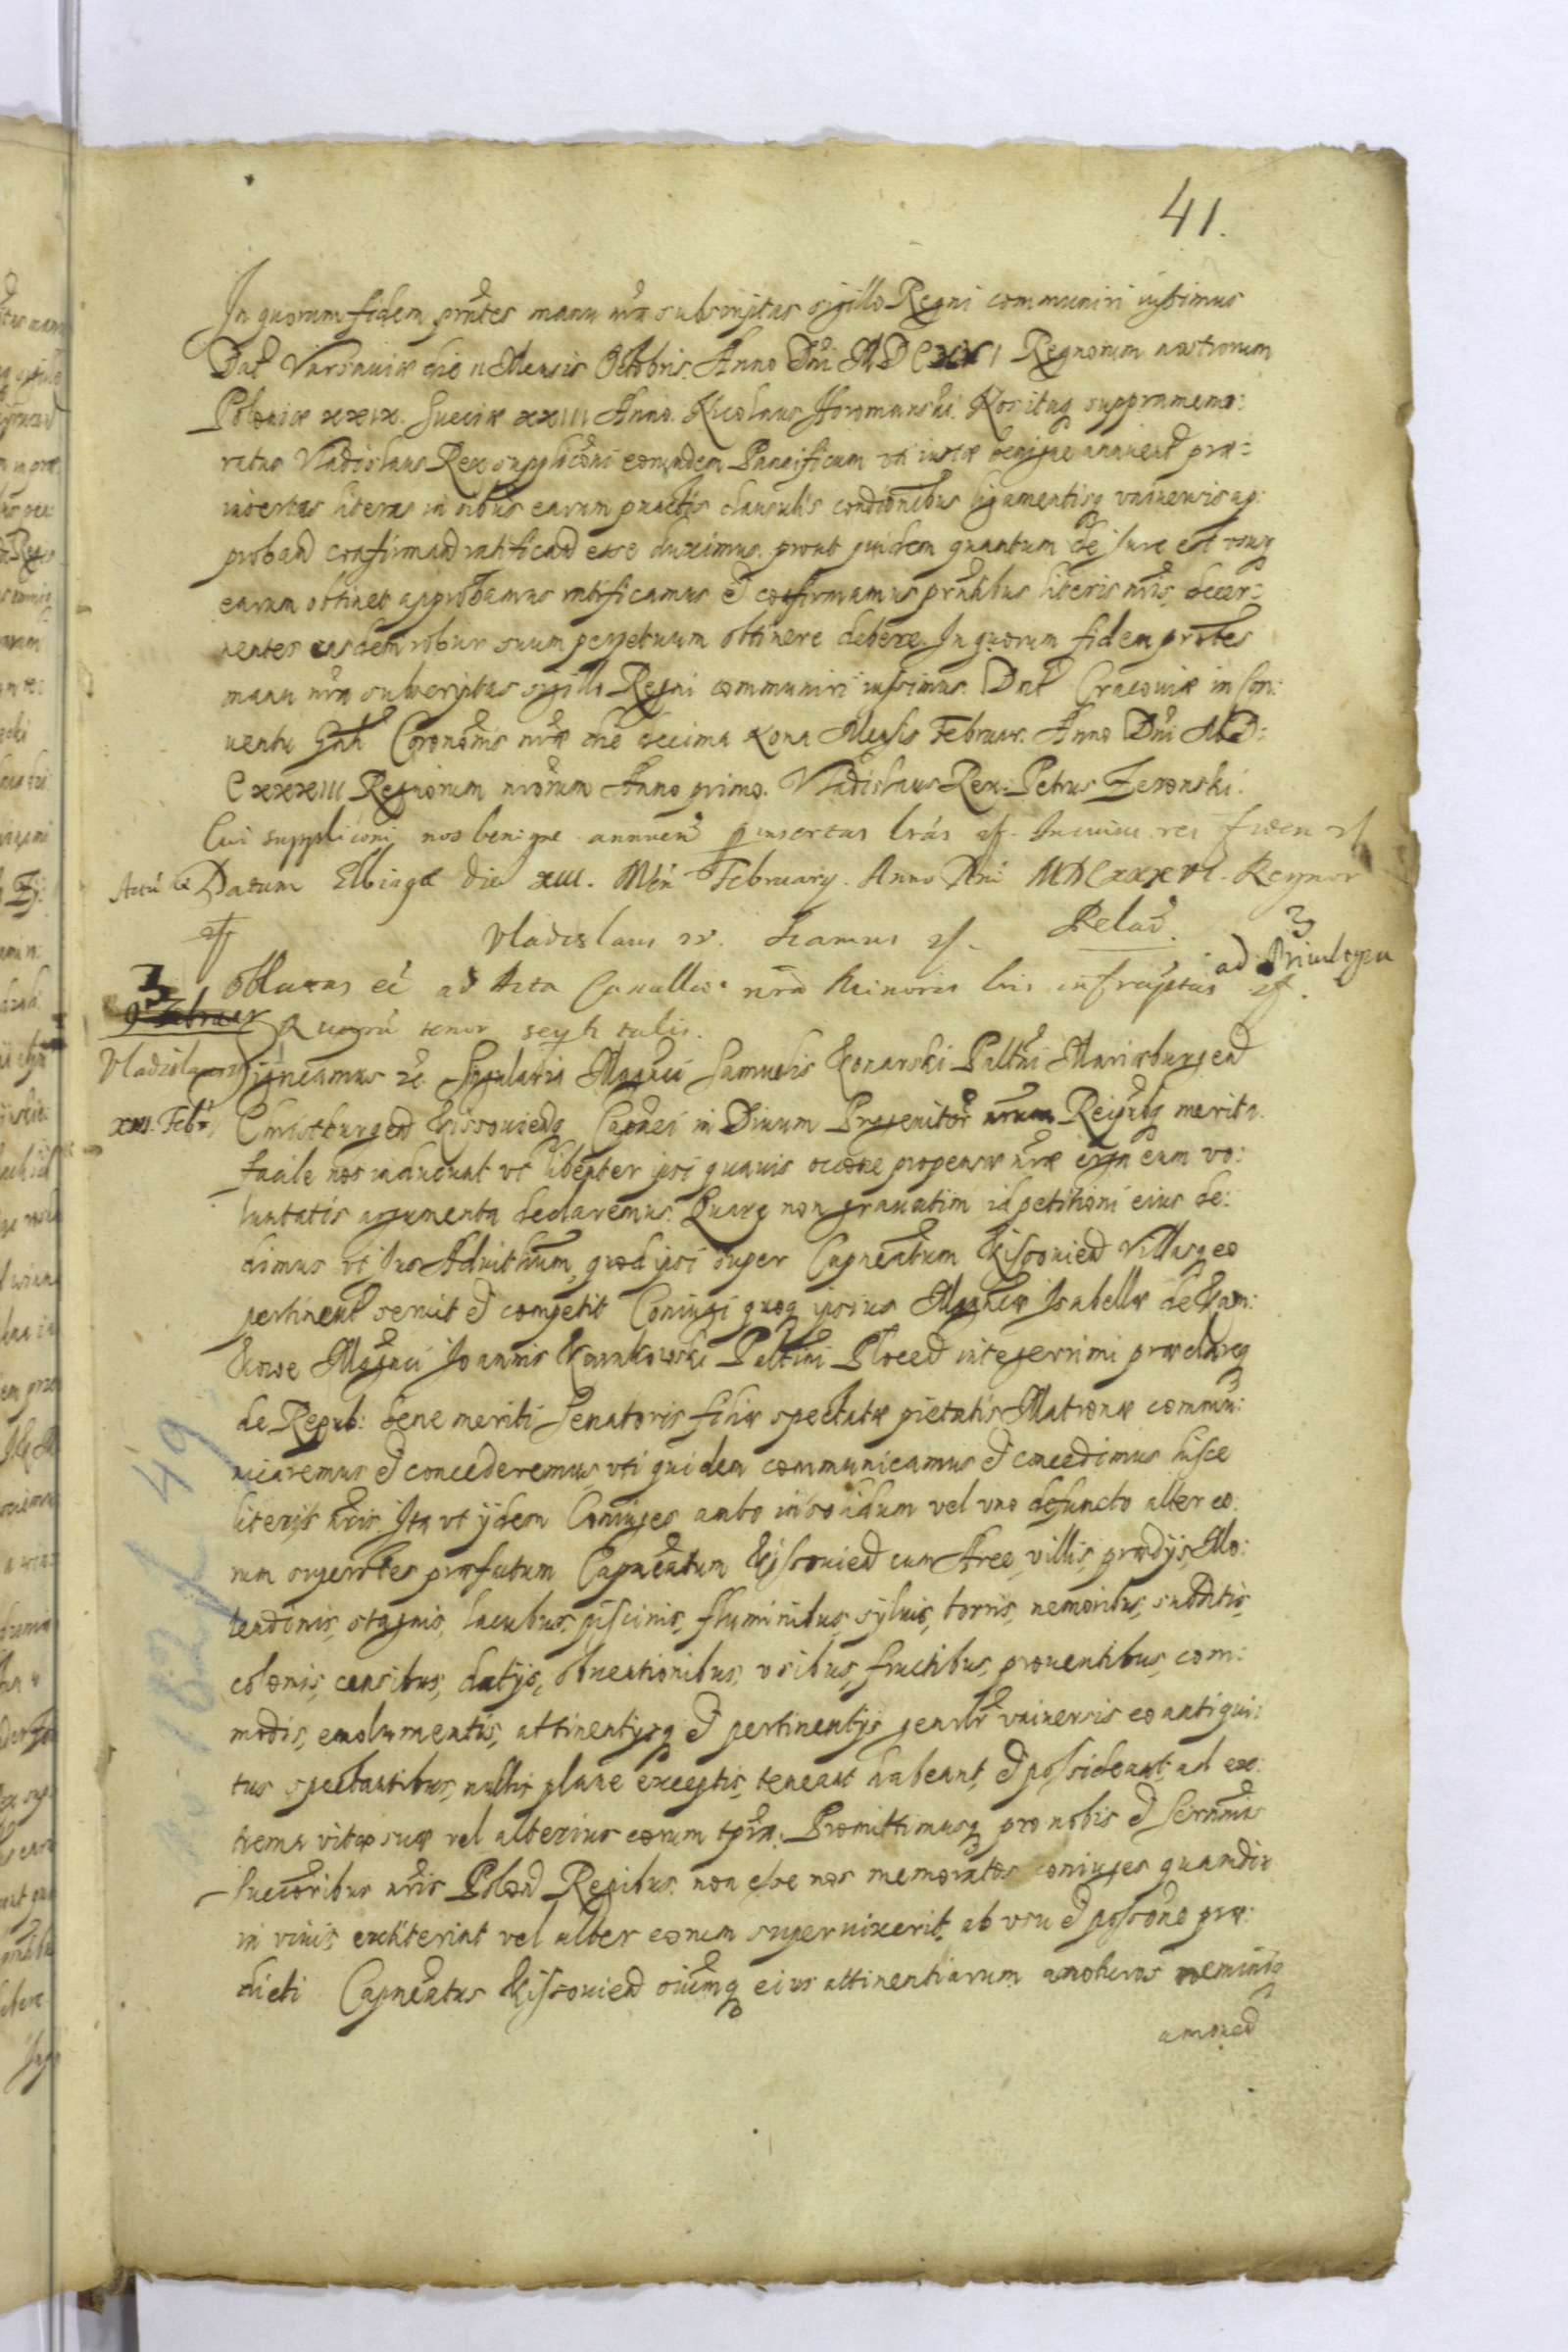 41.
In quorum fidem prntes manu nra subscriptas sigillo Regni communiri iussimus
Dat Varsauiæ die II Mensis Octobris. Anno Dni MDC Regnorum nostrorum
Poloniæ xxix. Sueciæ xxiii Anno. Nicolaus Noritaq suppramemo:
ratus Vladislaus Rex suppliconi eorundem Pannificum uti iustæ benigne annuend præ:
insertas literas in oibus earum punctis clausulis condionibus ligamentisq uniuersis ap:
proband confirmand ratificand esse duximus. prout quidem quantum de Jure est ususq
earum obtinet approbamus ratificamus et confirmamus prntibus literis nris, decer:
nentes easdem robur suum perpetuum obtinere debere. In quorum fidem prntes
manu nra subscriptas sigillo Regni communiri iussimus. Dat Cracouiæ in Con:
uentu Gnli Corononis nræ die decima Nona Mensis Februar. Anno Dni MD:
CXXXIII Regnorum nrorum Anno primo. Vladislaus Rex. Petrus Zeronski.
Cui supplicioni nos benigne annuen insertas lras In cuius rei fidem
Actu Datum Elbingæ die xiii. Men February. Anno Dni MDCxxxvi. Regnor
Vladislaus Relao.
3
ad Priuilegia
3
Oblatas ee ad Acta Cancellæ nra Minoris lris infrascriptas
9 Februar Quarū tenor seqt talis.
Vladislaus Significamus &c. Singularia Magnci Samuelis Konarski Paltini Mariæburgen
xiii. Feb. Christburgen Kissouienq Capnei in Diuum Progenitor nrum Reipubq merita
facile nos inducunt ut libenter ipsi quauis occone propensæ nræ erga eum vo:
luntatis argumenta declaremus. Quare non grauatim id petitioni eius de:
dimus ut Jus Aduitium, quod ipsi super Capneatum Kissouien Villasq eo
pertinent seruit et competit Coniugi quoq ipsius Magncæ Isabellæ de Karn:
kowo Magnci Joannis Karnkowski Paltini Plocen integerrimi præclareq
de Repub: bene meriti Senatoris filiæ spectatæ pietatis Matronæ commu:
nicaremus et concederemus, uti quidem communicamus et concedimus hisce
literis nris. Ita ut ijdem Coniuges ambo insolidum vel uno defuncto alter eo:
rum superstes præfatum Capneatum Kissouien cum Arce, villis, prædijs, Mo:
lendinis, stagnis, lacubus, piscinis, fluminibus, syluis, borris, nemoribus, subditis,
colonis, censibus, datijs, obuentionibus, usibus, fructibus, prouentibus, com:
modis, emolumentis, attinentijsq et pertinentijs genlr uniuersis eo antiqui:
tus spectantibus, nullis plane exceptis, teneant habeant, et possideant, ad ex:
trema vitæ suæ vel alterius eorum tpra. Promittimusq pro nobis et Sermis
Succoribus nris Polon Regibus. non esse nos memoratos coniuges quamdiu
in viuis extiterint vel alter eorum superuixerit, ab usu et possone præ:
dicti Capneatus Kissouien oiumq eius attinentiarum amoturos neminiq
amouen